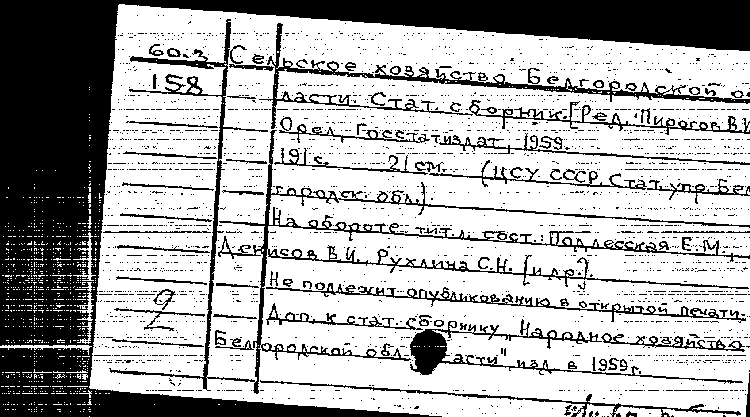 60.3 Сельское хозяйство Белгородской о
158
ласти. Стат. сборник. [Ред.: Пирогов В.И
Орел, Госстатиздат, 1959.
191 с. 21 см. (ЦСУ СССР. Стат. упр. Бел
городск. обл.).
На обороте тит. л. сост.: Подлесская Е.М.,
Денисов В.И., Рухлина С.Н. [и др.].
Не подлежит опубликованию в открытой печати.
Доп. к стат. сборнику "Народное хозяйство
2
Белгородской области" изд. в 1959 г.